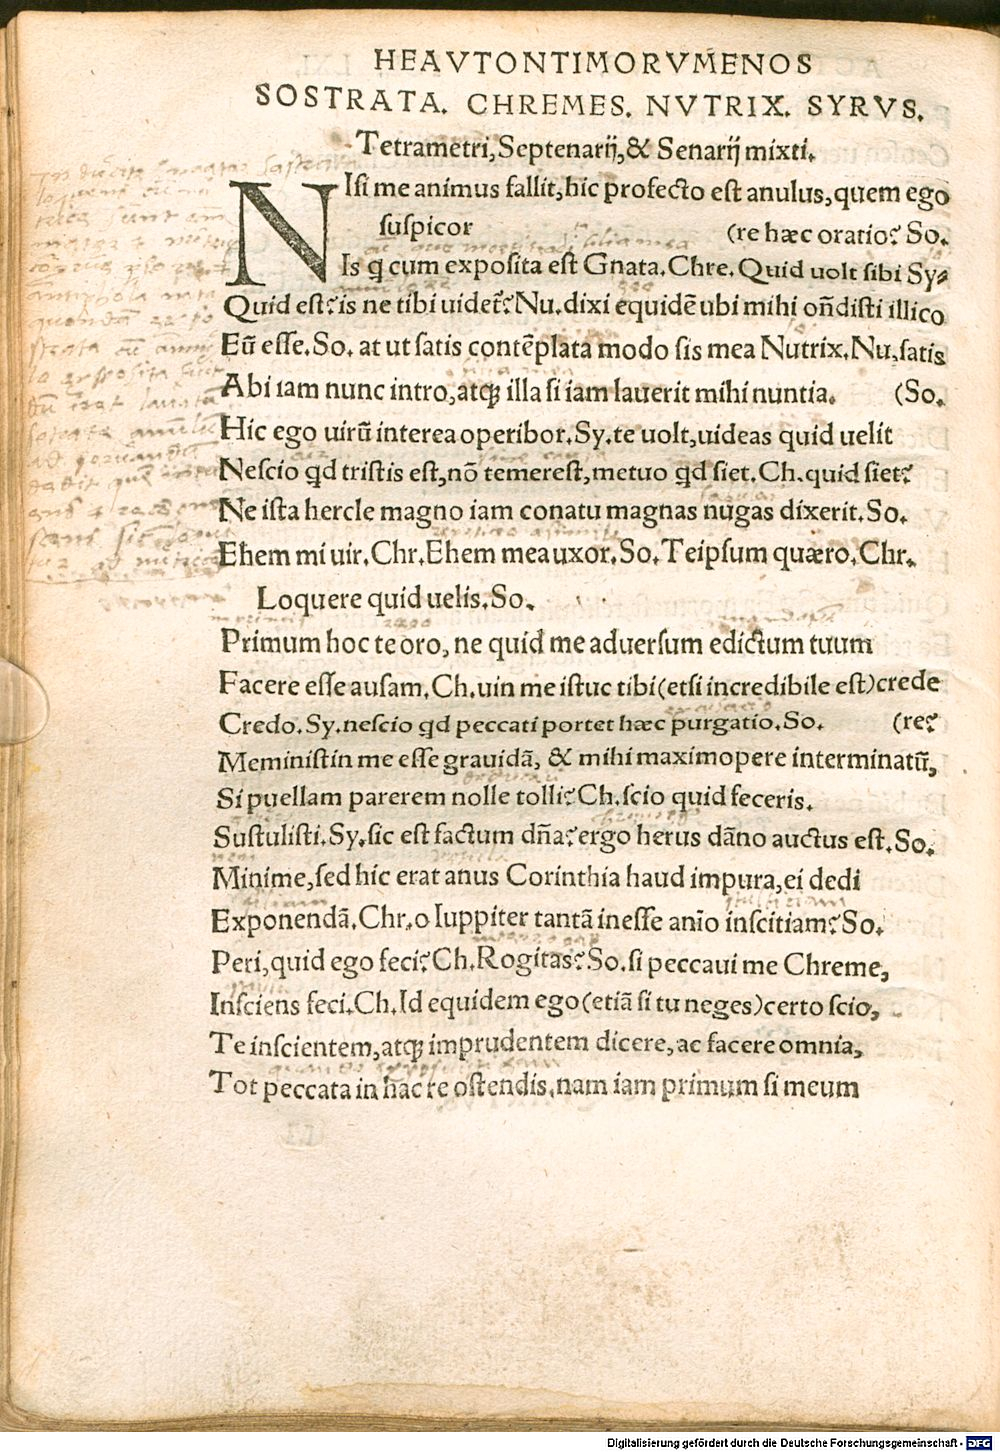 HEAVTONTIMORVMENOS
SOSTRATA. CHREMES. NVTRIX. SYRVS.
Tetrametri, Septenarij, & Senarij mixti.
NIsi me animus fallit, hic profecto est anulus, quem ego
suspicor (re hæc oratio? So.
Is q̄ cum exposita est Gnata. Chre. Quid uolt sibi Sy-
Quid est? is ne tibi uidet̃? Nu. dixi equidē ubi mihi oñdisti illico
Eū esse. So. at ut satis contēplata modo sis mea Nutrix. Nu, satis
Abi iam nunc intro, atq; illa si iam lauerit mihi nuntia. (So.
Hic ego uirū interea operibor. Sy. te uolt, uideas quid uelit
Nescio qd tristis est, nō temerest, metuo qd siet. Ch. quid siet?
Ne ista hercle magno iam conatu magnas nugas dixerit. So.
Ehem mi uir. Chr. Ehem mea uxor. So. Teipsum quæro. Chr.
Loquere quid uelis. So.
Primum hoc te oro, ne quid me aduersum edictum tuum
Facere esse ausam. Ch. uin me istuc tibi (etsi incredibile est) crede
Credo. Sy. nescio qd peccati portet hæc purgatio. So. (re?
Meministin me esse grauidā, & mihi maximopere interminatū,
Si puellam parerem nolle tolli? Ch. scio quid feceris.
Sustulisti. Sy. sic est factum dña? ergo herus dāno auctus est. So.
Minime, sed hic erat anus Corinthia haud impura, ei dedi
Exponendā. Chr. o Iuppiter tantā inesse anio inscitiam? So.
Peri, quid ego feci? Ch. Rogitas? So. si peccaui me Chreme,
Insciens feci. Ch. Id equidem ego (etiā si tu neges) certo scio,
Te inscientem, atq; imprudentem dicere, ac facere omnia,
Tot peccata in hac re ostendis. nam iam primum si meum
Digitalisierung gefördert durch die Deutsche Forschungsgemeinschaft - DFG